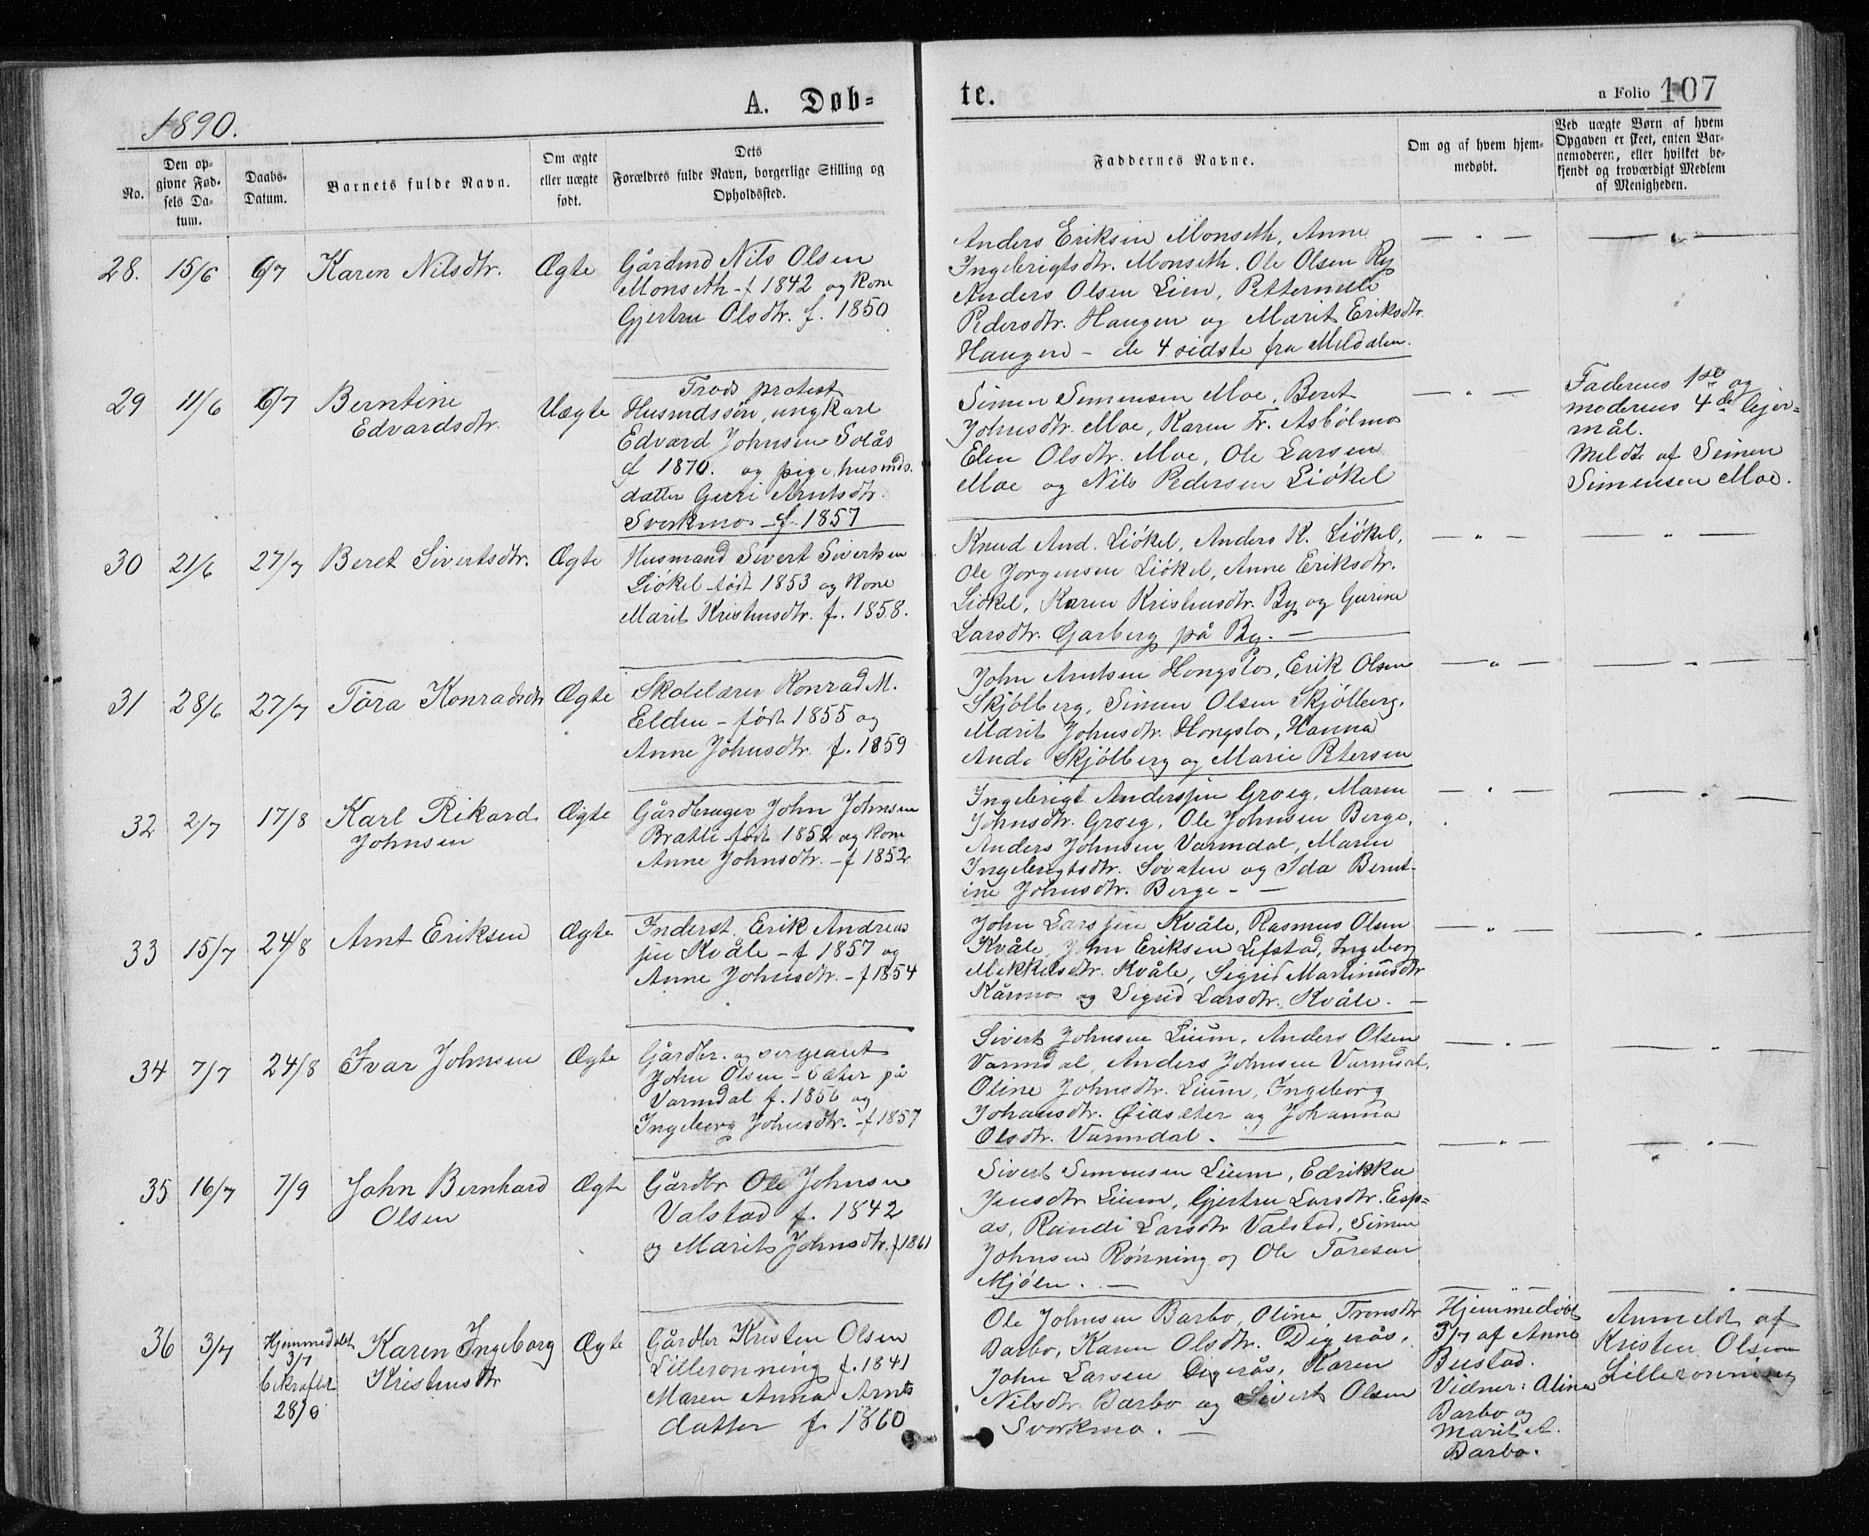 1890.
A. Døb=
te.
a Folio 107
No.
Den op-
givne Fød-
sels Da-
tum.
Daabs-
Datum.
Barnets fulde Navn.
Om ægte
eller uægte
født.
Dets
Forældres fulde Navn, borgerlige Stilling og
Opholdssted.
Faddernes Navne.
Om og af hvem hjem-
medøbt.
Ved uægte Børn af hvem
Opgaven er skeet, enten Bar-
nemoderen, eller hvilket be-
kjendt og troværdigt Medlem
af Menigheden.
28. 15/6 6/7 Karen Nilsdtr. Ægte
Gårdmd Nils Olsen
Monseth f 1842 og Kone
Gjertru Olsdtr. f. 1850
Anders Eriksen Monseth, Anne
Ingebrigtsdtr. Monseth. Ole Olsen Ry
Anders Olsen Lien, Petternille
Pedersdtr. Haugen og Marit Eriksdtr.
Haugen - de 4 sidste fra Meldalen.
29 11/6 6/7 Berntine
Edvardsdtr. Uægte
Trods protest
Husmdssøn, ungkarl
Edvard Johnsen Solås
f 1870. og pige, husmds.
datter Gurri Arntsdtr.
Svorkmo f. 1857
Simen Simensen Moe, Beret
Johnsdtr. Moe, Karen Fr. Asbølmo
Elen Olsdtr. Moe, Ole Larsen
Moe og Nils Pedersen Liøkel
Faderens 1ste og
moderens 4de lejer-
mål.
Meldt af Simen
Simensen Moe.
30 21/6 27/7 Beret Sivertsdtr. Ægte
Husmand Sivert Sivertsen
Liøkel født 1853 og Kone
Marit Kristensdtr. f. 1858.
Knud And. Liøkel, Anders K. Liøkel,
Ole Jørgensen Liøkel, Anne Eriksdtr.
Liøkel, Karen Kristensdtr. By og Gurine
Larsdtr. Garberg på By. —
31 28/6 27/7 Tora Konradsdtr Ægte
Skolelærer Konrad M.
Elden - født 1855 og
Anne Johnsdtr. f. 1859
John Arntsen Hongslo, Erik Olsen
Skjølberg, Simen Olsen Skjølberg,
Marit Johnsdtr. Hongslo, Hanna
And. Skjølberg og Marie Petersen
32 2/7 17/8 Karl Rikard
Johnsen Ægte
Gårdbruger John Johnsen
Bratli født 1852 og Kone
Anne Johnsdtr. - f 1852
Ingebrigt Anderssen Groeg, Maren
Johnsdtr. Groeg, Ole Johnsen Berge,
Anders Johnsen Varmdal, Maren
Ingebrigtsdtr. Sovaten og Ida Bernt-
ine Johnsdtr. Berge - —
33 15/7 24/8 Arnt Eriksen Ægte
Inderst. Erik Andreas
sen Kvåle - f 1857 og
Anne Johnsdtr. - f 1854
John Larssen Kvåle, Rasmus Olsen
Kvåle, John Eriksen Lefstad, Ingeborg
Mikkelsdtr. Kvåle, Sigrid Martinusdtr
Kårmo og Sigrid Larsdtr. Kvåle. —
34 7/7 24/8 Ivar Johnsen Ægte
Gårdbr. og sergeant
John Olsen - sæter på
Varmdal f. 1856 og
Ingeborg Johnsdtr. - f 1857
Sivert Johnsen Lium, Anders Olsen
Varmdal, Anders Johnsen Varmdal,
Oline Johnsdtr. Lium, Ingeborg
Johansdtr. Øiasæter og Johanna
Olsdtr. Varmdal. —
35 16/7 7/9 John Bernhard
Olsen Ægte
Gårdbr Ole Johnsen
Valstad f. 1842
og Marit Johnsdtr. f 1861
Sivert Simensen Lium, Edrikka
Jensdtr Lium, Gjertru Larsdtr. Esp-
ås, Randi Larsdtr Valstad, Simen
Johnsen Rønning og Ole Toresen
Mjøen. —
36 3/7 Hjemmedøbt
3/7
bekræftet
28/9 Karen Ingeborg
Kristensdtr Ægte
Gårdbr Kristen Olsen
Lillerønning f. 1841
Maren Anna Arnts
datter f. 1860
Ole Johnsen Barbo, Oline Tronsdtr
Barbo, Karen Olsdtr. Digerås,
John Larsen Digerås, Karen
Nilsdtr. Barbo og Sivert Olsen
Svorkmo. —
Hjemmedøbt
3/7 af Anne
Bustad.
Vidner: Alina
Barbo og
Marit A.
Barbo.
Anmeldt af
Kristen Olsen
Lillerønning